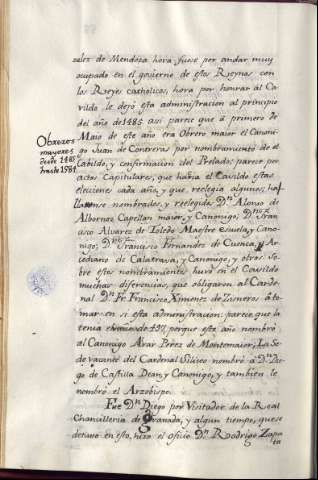 zalez de Mendoza hora, fuese por andar muy
ocupado en el govierno de estos Reynos con
los Reyes catholicos, hora por honrar al Ca-
vildo le dejó esta administracion al principio
del año de 1485 assi parece que á primero de
Maio de este año era Obrero maior el Canoni-
go Juan de Contreras por nombramiento de el
Cabildo, y confirmacion del Prelado: parece por
actos Capitulares, que habia el Cavildo estas
elecciones cada año, y que reelegia algunos; ha-
llanse nombrados, y reelegidos Dn. Alonso de
Albornoz Capellan maior, y Canonigo; Dn. Fran-
cisco Alvarez de Toledo Maestre escuela, y Cano-
nigo; Dn. Francisco Fernandez de Cuenca, Ar-
cediano de Calatrava, y Canonigo, y otros. So-
bre estos nombramientos huvo en el Cavildo
muchas diferencias, que obligaron al Carde-
nal Dn. Fr. Francisco Ximenez de Zisneros á to-
mar en si esta administracion: parece que la
tenia el año de 497, porque este año nombró
al Canonigo Alvar Perez de Montemaior; La Se-
de vacante del Cardenal Siliceo nombró á Dn. Die-
go de Castilla Dean, y Canonigo, y tambien le
nombró el Arzobispo
Fue Dn. Diego por Visitador de la Real
Chancilleria de Granada, y algun tiempo, que se
detuvo en esto, hizo el oficio Dn. Rodrigo Zapa-
ta
Obreros
mayores
desde 1485
hasta 1581